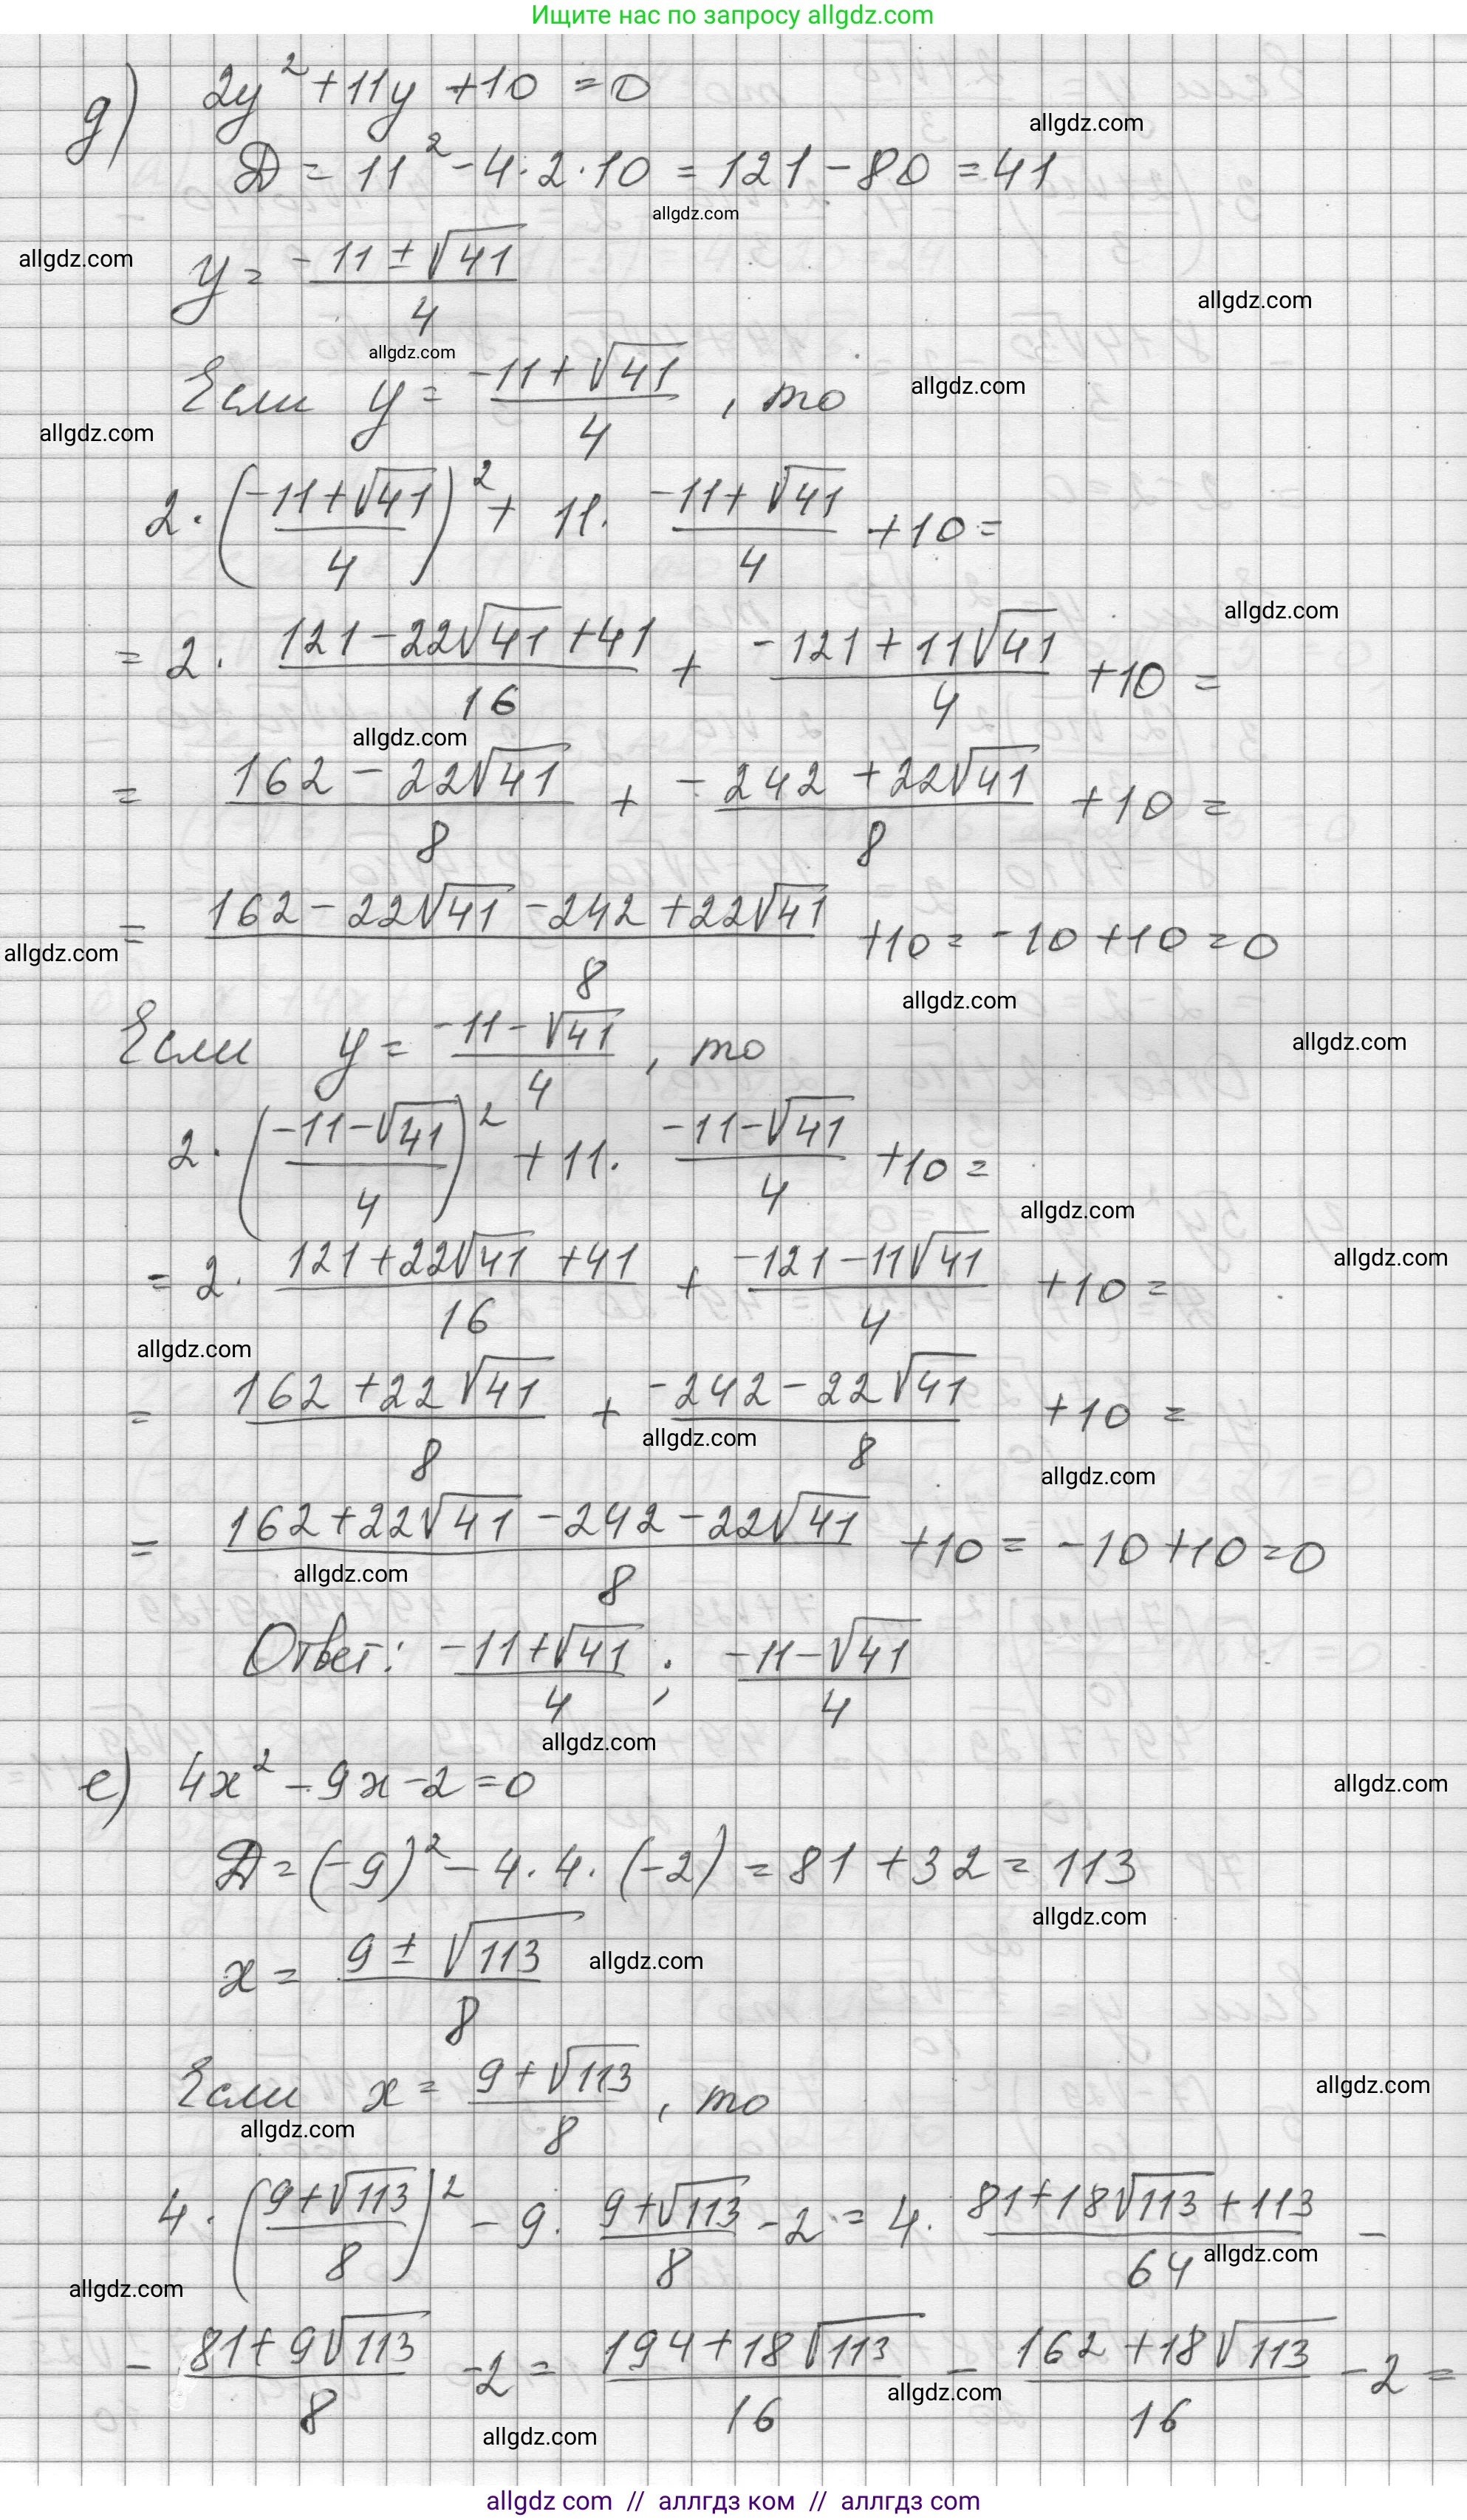 Ищите нас по запросу allgdz.com
д) 2y² + 11y + 10 = 0
allgdz.com
D = 11² - 4·2·10 = 121 - 80 = 41
allgdz.com
allgdz.com
y = (-11 ± √41)/4
allgdz.com
allgdz.com
Если y = (-11 + √41)/4, то
allgdz.com
allgdz.com
2·((-11 + √41)/4)² + 11·(-11 + √41)/4 + 10 =
allgdz.com
= 2·(121 - 22√41 + 41)/16 + (-121 + 11√41)/4 + 10 =
allgdz.com
= (162 - 22√41)/8 + (-242 + 22√41)/8 + 10 =
= (162 - 22√41 - 242 + 22√41)/8 + 10 = -10 + 10 = 0
allgdz.com
allgdz.com
Если y = (-11 - √41)/4, то
allgdz.com
2·((-11 - √41)/4)² + 11·(-11 - √41)/4 + 10 =
allgdz.com
= 2·(121 + 22√41 + 41)/16 + (-121 - 11√41)/4 + 10 =
allgdz.com
allgdz.com
= (162 + 22√41)/8 + (-242 - 22√41)/8 + 10 =
allgdz.com
allgdz.com
= (162 + 22√41 - 242 - 22√41)/8 + 10 = -10 + 10 = 0
allgdz.com
Ответ: (-11 + √41)/4; (-11 - √41)/4
allgdz.com
е) 4x² - 9x - 2 = 0
allgdz.com
D = (-9)² - 4·4·(-2) = 81 + 32 = 113
allgdz.com
x = (9 ± √113)/8
allgdz.com
Если x = (9 + √113)/8, то
allgdz.com
allgdz.com
4·((9 + √113)/8)² - 9·(9 + √113)/8 - 2 = 4·(81 + 18√113 + 113)/64 -
allgdz.com
allgdz.com
- (81 + 9√113)/8 - 2 = (194 + 18√113)/16 - (162 + 18√113)/16 - 2 =
allgdz.com
allgdz.com
allgdz com // аллгдз ком // allgdz com